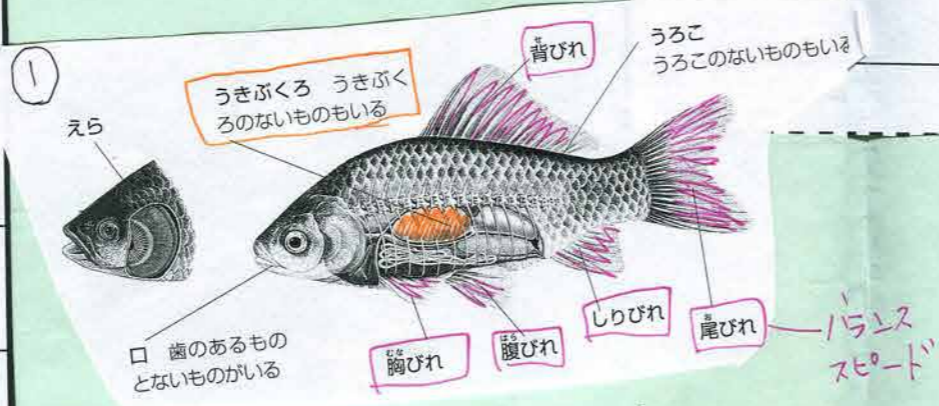 ①
えら
うきぶくろ うきぶく
ろのないものもいる
背びれ
せ
うろこ
うろこのないものもいる
口 歯のあるもの
とないものがいる
胸びれ
むな
腹びれ
はら
しりびれ
尾びれ
お
バランス
スピード